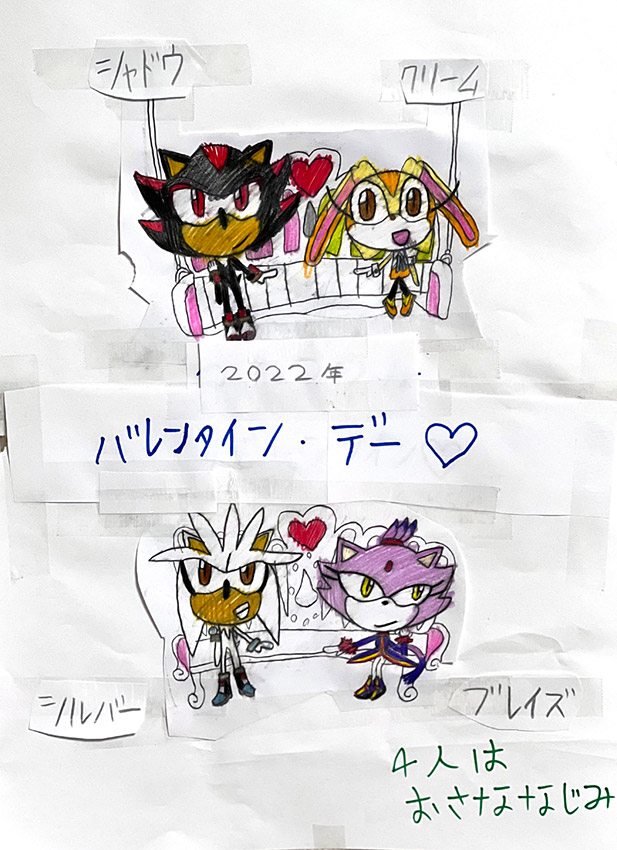 シャドウ
クリーム
2022年
バレンタイン・デー♡
シルバー
ブレイズ
4人は
おさななじみ